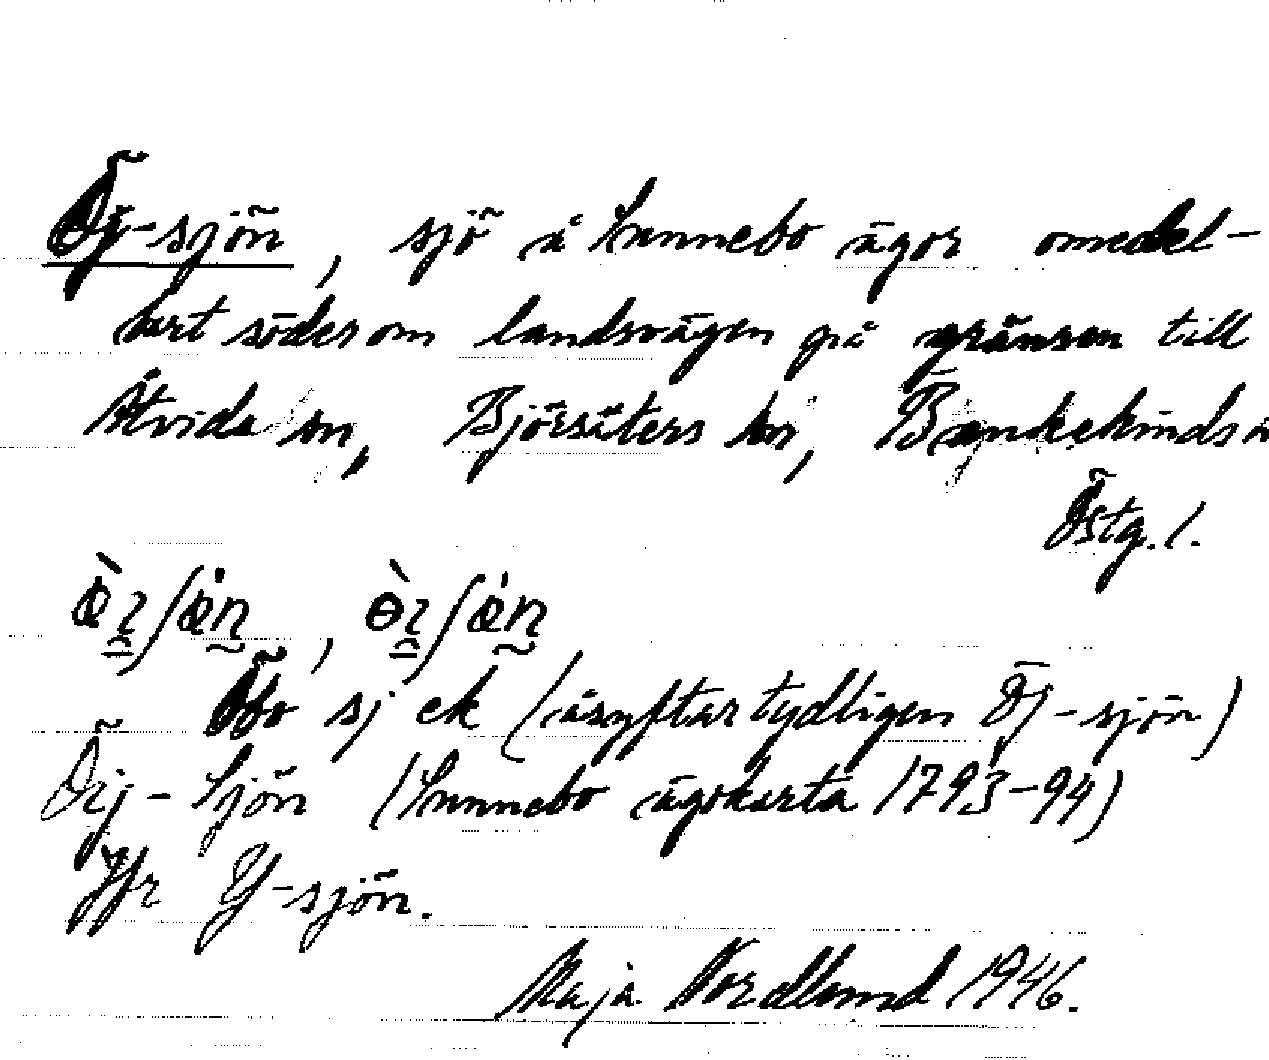 Öj-sjön, sjö å Sunnebo ägor omedel-
bart söder om landsvägen på gränsen till
Åtvids sn, Björsäters sn, Bankekinds
Östg. l.
sj ek (åsyftar tydligen Öj-sjön)
Öij-Sjön (Sunnebo ägokarta 1793-94)
Jfr Y-sjön.
Maja Nordlund 1946.